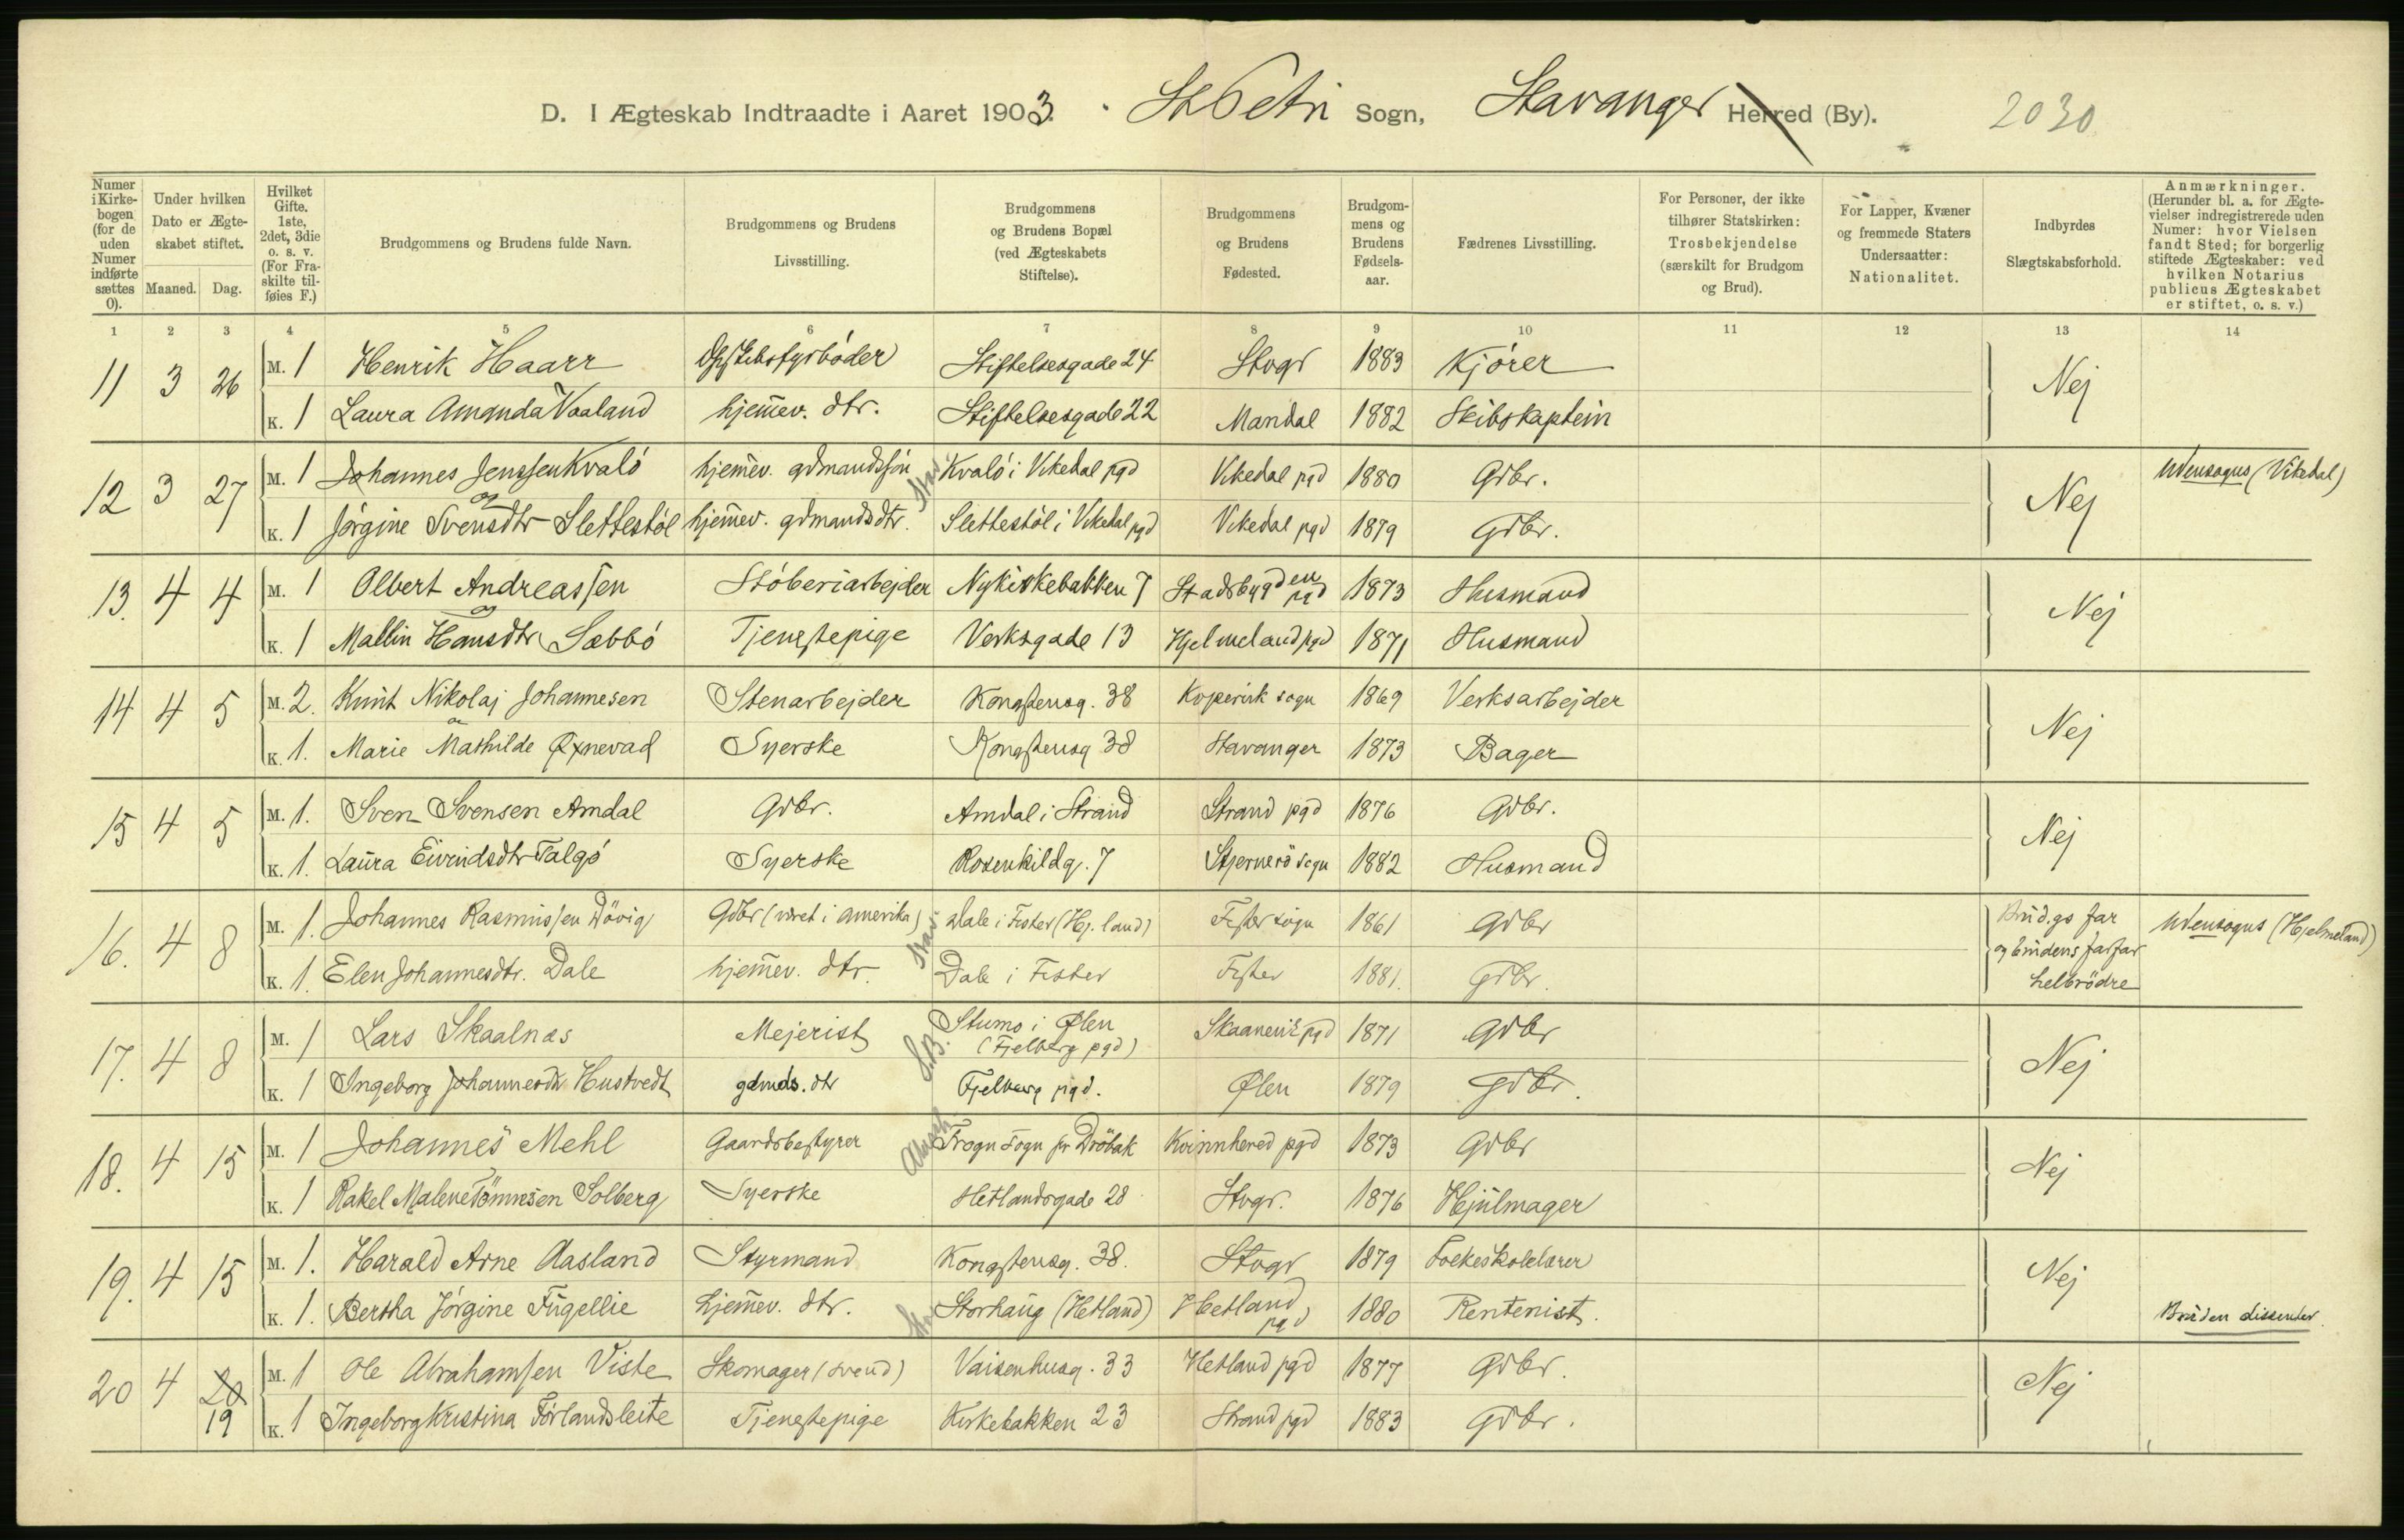 D. I Ægteskab Indtraadte i Aaret 1903. St Petri Sogn, Stavanger Herred (By). 2030
Numer i Kirkebogen (for de uden Numer indførte sættes 0). Under hvilken Dato er Ægteskabet stiftet. Maaned. Dag. Hvilket Gifte. 1ste, 2det, 3die o. s. v. (For Fraskilte tilføies F.) Brudgommens og Brudens fulde Navn. Brudgommens og Brudens Livsstilling. Brudgommens og Brudens Bopæl (ved Ægteskabets Stiftelse). Brudgommens og Brudens Fødested. Brudgommens og Brudens Fødselsaar. Fædrenes Livsstilling. For Personer, der ikke tilhører Statskirken: Trosbekjendelse (særskilt for Brudgom og Brud). For Lapper, Kvæner og fremmede Staters Undersaatter: Nationalitet. Indbyrdes Slægtskabsforhold. Anmærkninger. (Herunder bl. a. for Ægtevielser indregistrerede uden Numer: hvor Vielsen fandt Sted; for borgerlig stiftede Ægteskaber: ved hvilken Notarius publicus Ægteskabet er stiftet, o. s. v.)
1 2 3 4 5 6 7 8 9 10 11 12 13 14
11 3 26 M. 1 Henrik Haarr Stiftelsesgade 24 Stvgr 1883 Kjörer Nej
K. 1 Laura Amanda Vaaland hjemmev. dtr. Stiftelsesgade 22 Mandal 1882 Skibskaptein
12 3 27 M. 1 Johannes Jenssen Kvalö hjemmev. gdmandssön Stav. Kvalö i Vikedal pgd Vikedal pgd 1880 Gdbr. Nej Udensogns (Vikedal)
og
K. 1 Jörgine Svensdtr Slettestöl hjemmev. gdmandsdtr. Slettestöl i Vikedal pgd Vikedal pgd 1879 Gdbr.
13. 4 4 M. 1 Olbert Andreassen Stöberiarbejder Nykirkebakken 7 Stadsbygden pgd 1873 Husmand Nej
og
K. 1 Mallin Hansdtr Sæbbö Tjenestepige Verksgade 13 Hjelmeland pgd 1871 Husmand
14 4 5 M. 2. Knut Nikolaj Johannesen Stenarbejder Kongstensg. 38 Kopervik sogn 1869 Verksarbejder Nej
og
K. 1. Marie Mathilde Øxnevad Syerske Kongstensg 38 Stavanger 1873 Bager
15 4 5 M. 1. Sven Svensen Amdal Gdbr. Amdal i Strand Strand pgd 1876 Gdbr. Nej
K. 1. Laura Eivindsdtr Talgö Syerske Rosenkildg. 7 Stjernerö sogn 1882 Husmand
16. 4 8 M. 1. Johannes Rasmussen Dövig Gdbr (været i Amerika) Stav. Dale i Fister (Hj.land) Fister sogn 1861 Gdbr Brudgs far og brudens farfar helbrödre Udensogns (Hjelmeland)
K. 1. Elen Johannesdtr. Dale hjemmev. dtr. Dale i Fister Fister 1881. Gdbr.
17. 4 8 M. 1 Lars Skaalnæs Mejerist S.B. Stumo i Ølen (Fjelberg pgd) Skaanevik pgd 1871 Gdbr Nej
K. 1 Ingeborg Johannesdtr Hustvedt gdmds. dtr Fjelberg pgd. Ølen 1879 Gdbr.
18. 4 15 M. 1 Johannes Mehl Gaardsbestyrer Frogn Sogn pr Dröbak Kvinnhered pgd 1873 Gdbr Nej
K. 1 Rakel Malene Tönnesen Solberg Syerske Hetlandsgade 28 Stvgr. 1876 Hjulmager
19. 4 15 M. 1. Harald Arne Aasland Styrmand Kongstensg. 38. Stvgr 1879 Folkeskolelærer Nej
K. 1. Bertha Jörgine Fugellie hjemmev. dtr. Stav Storhaug (Hetland) Hetland pgd 1880 Rentenist. Bruden dissenter.
20 4 20 19 M. 1 Ole Abrahamsen Viste Skomager (svend) Vaisenhusg. 33 Hetland pgd 1877 Gdbr. Nej
K. 1 Ingeborg Kristina Förlandsleite Tjenestepige Kirkebakken 23 Strand pgd 1883 Gdbr.